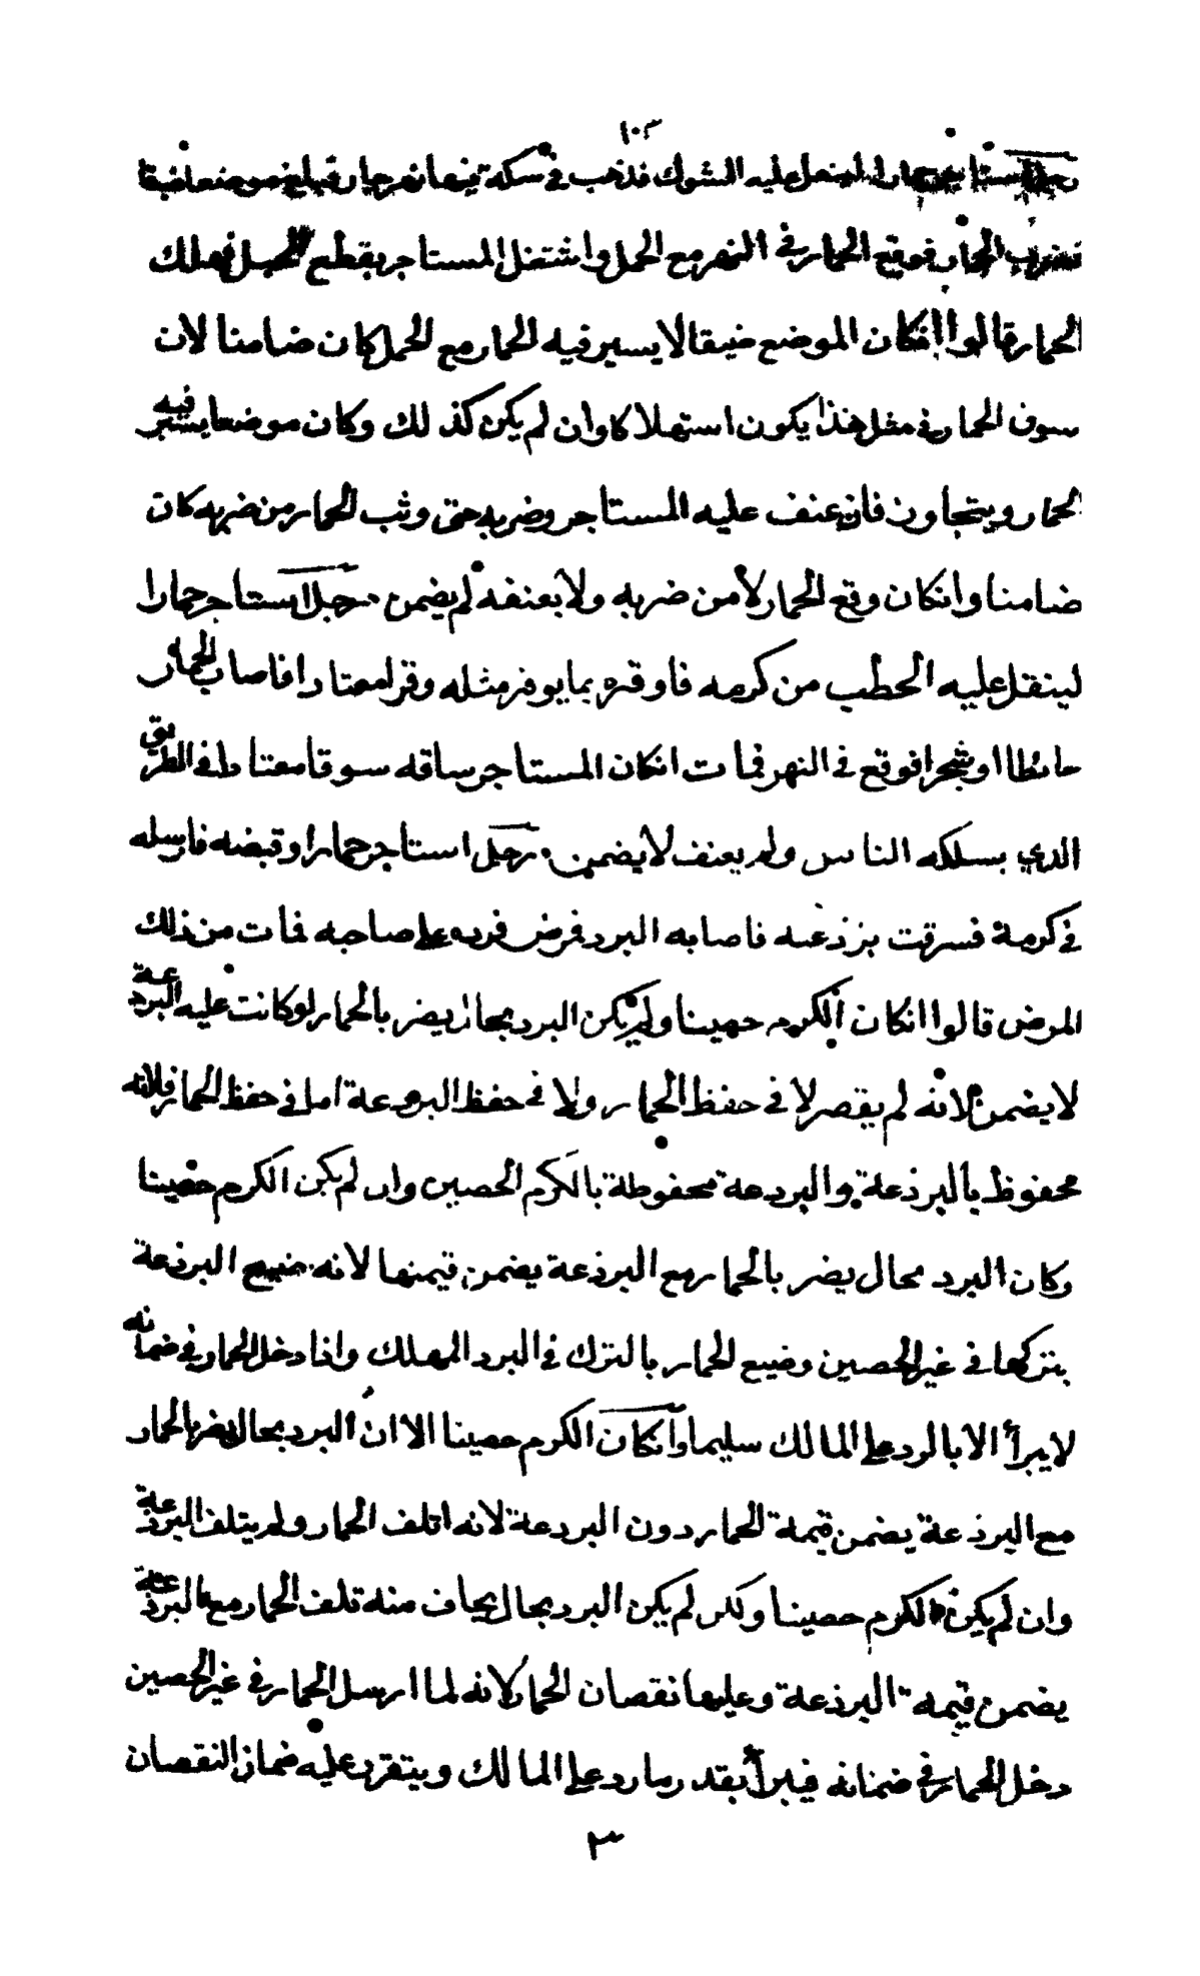 ١٠٣
رجل استاجر حمارا لينقل عليه الشوك فذهب في سكة فيها نهر جار فبلغ موضعا ضيقا
فضرب الحمار فوقع الحمار في النهر مع الحمل واشتغل المستاجر بقطع الحبل فهلك
الحمار قالوا انكان الموضع ضيقا لا يسير فيه الحمار مع الحمل كان ضامنا لان
سوق الحمار في مثل هذا يكون استهلاكا وان لم يكن كذلك وكان موضعا يسير فيه
الحمار ويتجاوز فان عنف عليه المستاجر وضربه حتى وثب الحمار من ضربه كان
ضامنا وانكان وقع الحمار لا من ضربه ولا بعنفه لم يضمن رجل استاجر حمارا
لينقل عليه الحطب من كرمه فاوقره بما يوقر مثله وقرا معتادا فاصاب الحمار
حائطا او شجرا فوقع في النهر فمات انكان المستاجر ساقه سوقا معتادا في الطريق
الذي يسلكه الناس ولم يعنف لا يضمن رجل استاجر حمارا وقبضه فارسله
في كرمه فسرقت برذعته فاصابه البرد فمرض فرده على صاحبه فمات من ذلك
المرض قالوا انكان الكرم حصينا ولم يكن البرد بحال يضر بالحمار لو كانت عليه البردعة
لا يضمن لانه لم يقصر لا في حفظ الحمار ولا في حفظ البردعة اما في حفظ الحمار فلانه
محفوظ بالبرذعة والبردعة محفوظة بالكرم الحصين وان لم يكن الكرم حصينا
وكان البرد بحال يضر بالحمار مع البرذعة يضمن قيمتها لانه ضيع البرذعة
بتركها في غير الحصين وضيع الحمار بالترك في البرد المهلك واذا دخل الحمار في ضمانه
لا يبرأ الا بالرد على المالك سليما وانكان الكرم حصينا الا ان البرد بحال يضر بالحمار
مع البرذعة يضمن قيمة الحمار دون البردعة لانه اتلف الحمار ولم يتلف البرذعة
وان لم يكن الكرم حصينا ولكن لم يكن البرد بحال يخاف منه تلف الحمار مع البرذعة
يضمن قيمة البرذعة وعليها نقصان الحمار لانه لما ارسل الحمار في غير الحصين
دخل الحمار في ضمانه فيبرأ بقدر ما رد على المالك ويتقرر عليه ضمان النقصان
٣